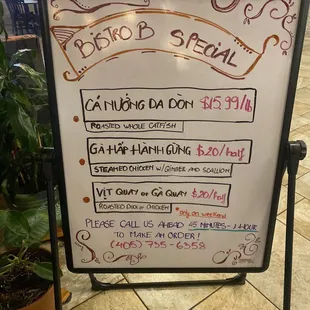 BISTRO B SPECIAL
CÁ NƯỚNG DA DÒN $15.99/lb
ROASTED WHOLE CATFISH
GÀ HẤP HÀNH GỪNG $20/half
STEAMED CHICKEN W/ GINGER AND SCALLION
VỊT QUAY or GÀ QUAY $20/half
ROASTED DUCK or CHICKEN * only on weekend
PLEASE CALL US AHEAD 45 MINUTES - 1 HOUR
TO MAKE AN ORDER!
(405) 735-6358